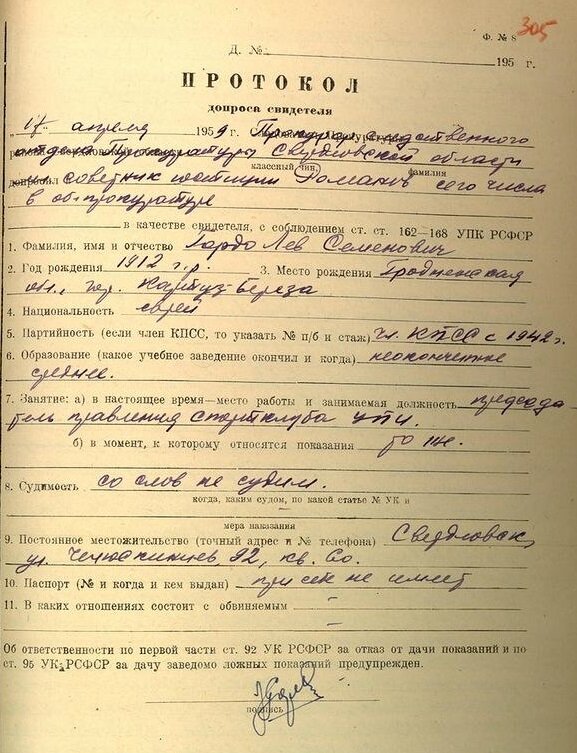 305
Ф. № 8
Д. № 195 г.
ПРОТОКОЛ
допроса свидетеля
„17“ апреля 1959 г. Прокурор следственного
отдела Прокуратуры Свердловской области
классный чин, фамилия
допросил советник юстиции Романов сего числа
в облпрокуратуре
в качестве свидетеля, с соблюдением ст. ст. 162—168 УПК РСФСР
1. Фамилия, имя и отчество Гордо Лев Семенович
2. Год рождения 1912 г.р. 3. Место рождения Гродненская
обл., гор. Картуз-Береза
4. Национальность еврей
5. Партийность (если член КПСС, то указать № п/б и стаж) чл. КПСС с 1942 г.
6. Образование (какое учебное заведение окончил и когда) неоконченное
среднее.
7. Занятие: а) в настоящее время—место работы и занимаемая должность председа
тель правления спортклуба УПИ.
б) в момент, к которому относятся показания то же.
8. Судимость со слов не судим.
когда, каким судом, по какой статье № УК и
мера наказания
9. Постоянное местожительство (точный адрес и № телефона) Свердловск,
ул. Чечюскинцев, 92, кв. 60.
10. Паспорт (№ и когда и кем выдан) при себе не имеет
11. В каких отношениях состоит с обвиняемым —
Об ответственности по первой части ст. 92 УК РСФСР за отказ от дачи показаний и по
ст. 95 УК РСФСР за дачу заведомо ложных показаний предупрежден.
подпись